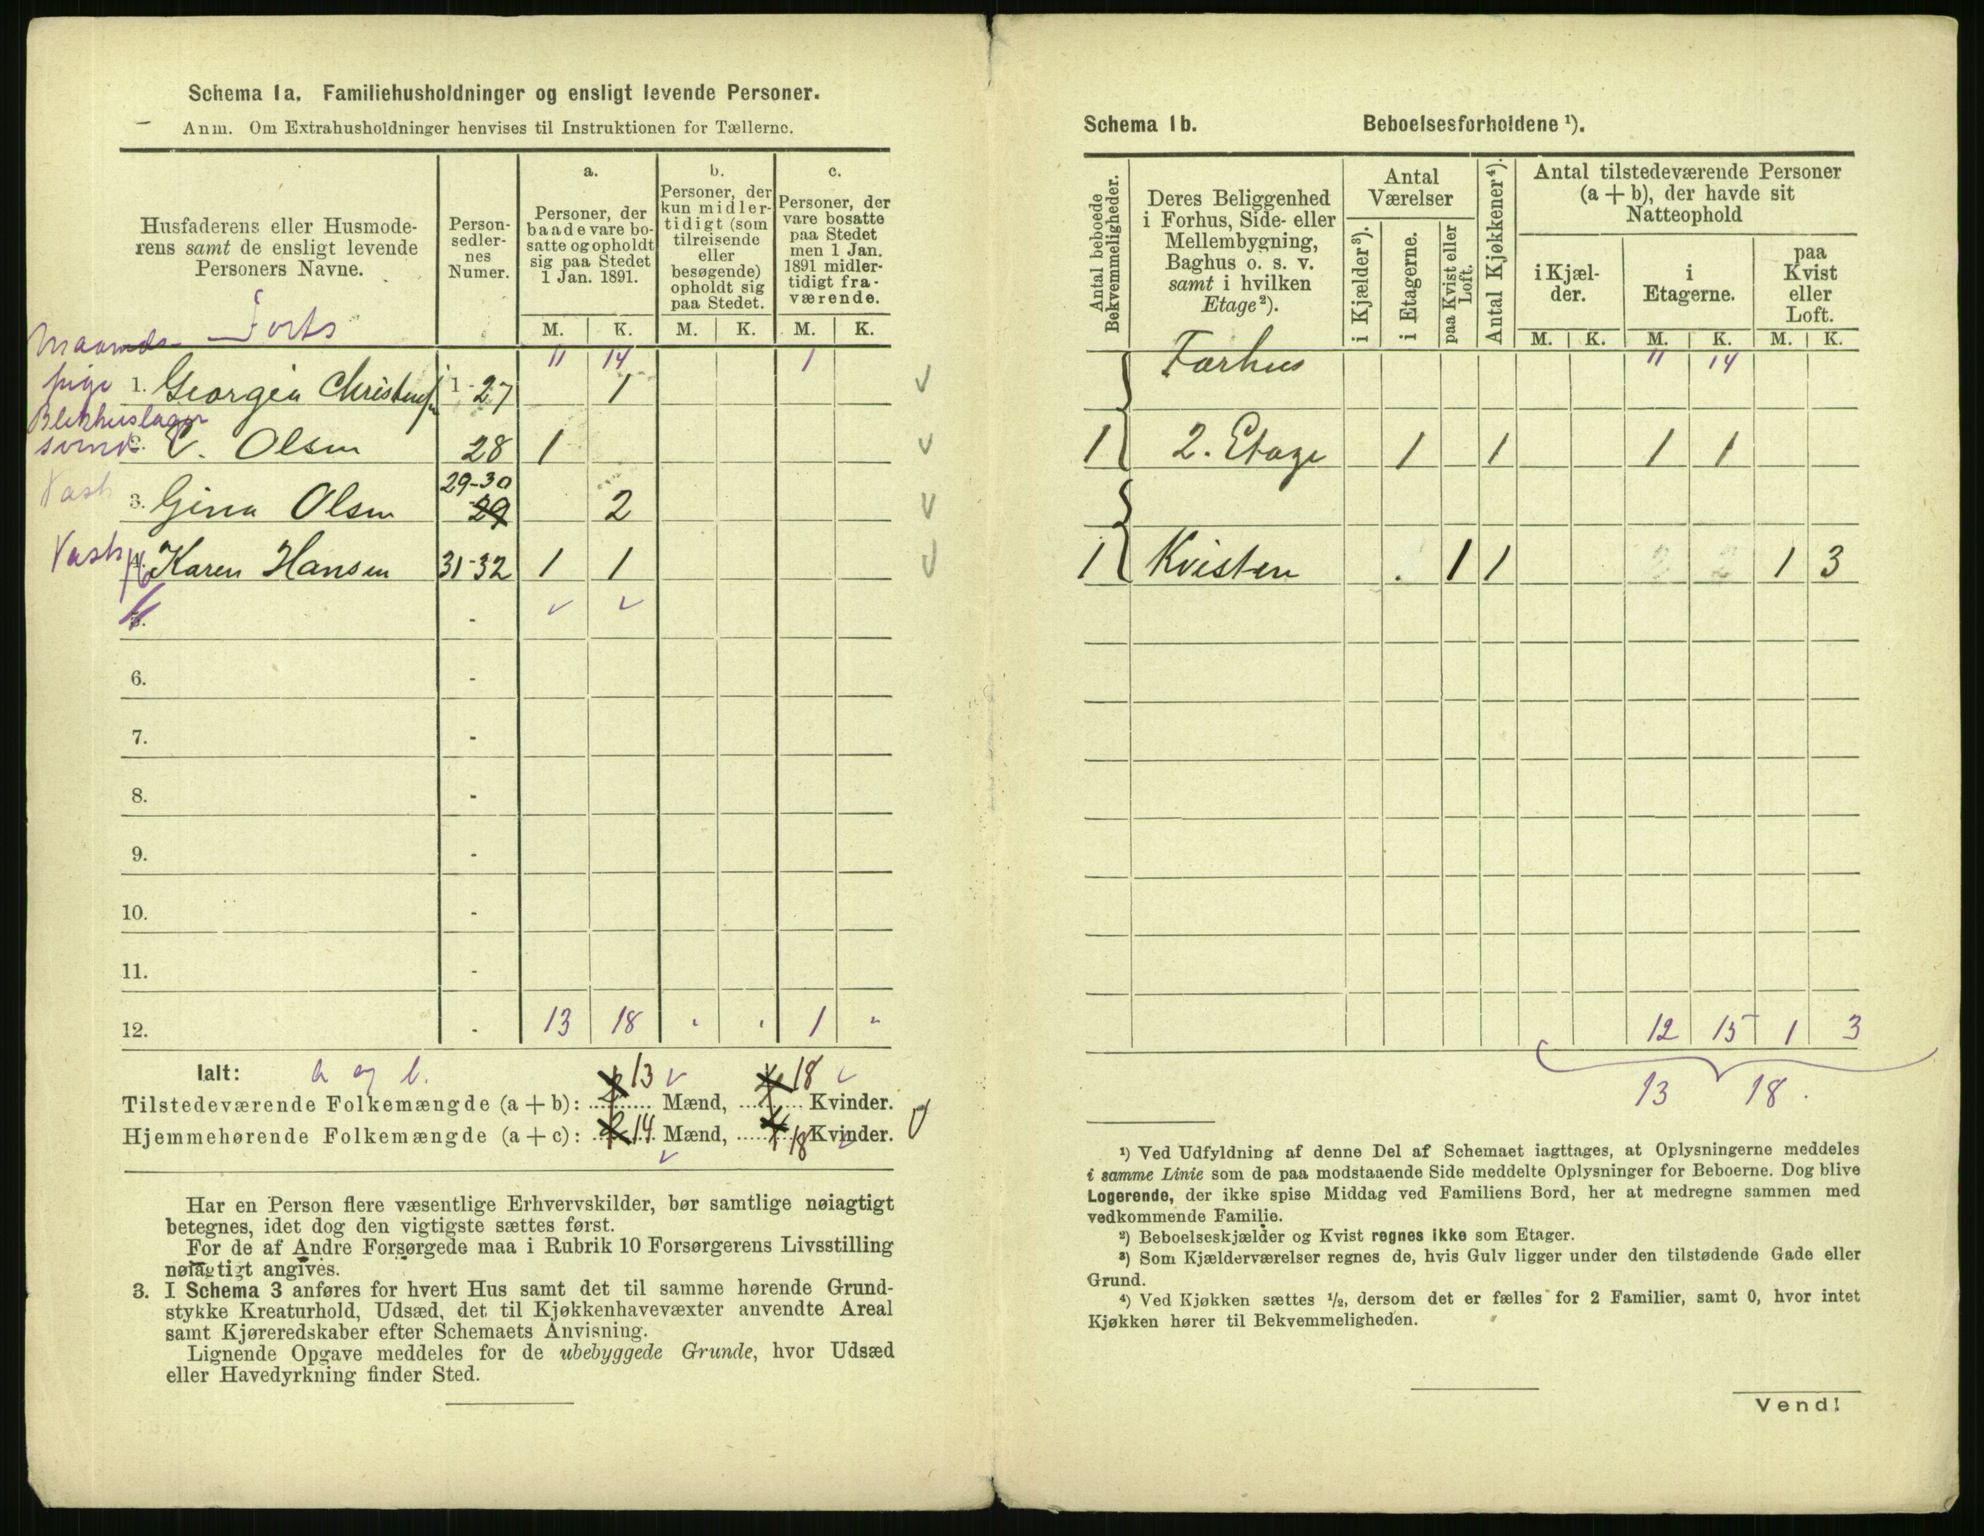 Schema 1a. Familiehusholdninger og ensligt levende Personer.
Anm. Om Extrahusholdninger henvises til Instruktionen for Tællerne.
Husfaderens eller Husmode-
rens samt de ensligt levende
Personers Navne.
Person-
sedler-
nes
Numer.
a.
Personer, der
baade vare bo-
satte og opholdt
sig paa Stedet
1 Jan. 1891.
b.
Personer, der
kun midler-
tidigt (som
tilreisende
eller
besøgende)
opholdt sig
paa Stedet.
c.
Personer, der
vare bosatte
paa Stedet
men 1 Jan.
1891 midler-
tidigt fra-
værende.
M. K. M. K. M. K.
Forts 11 14 1
Maaneds-
pige 1. Georgia Christens 1-27 1
Blikkenslager
svend 2. C. Olsen 28 1
Vask 3. Gina Olsen 29-30 29 2
Vask 4. Karen Hansen 31-32 1 1
5. -
6. -
7. -
8. -
9. -
10. -
11. -
12. - 13 18 " " 1 "
Ialt: a og b.
Tilstedeværende Folkemængde (a + b): 13 Mænd, 18 Kvinder.
Hjemmehørende Folkemængde (a + c): 14 Mænd, 18 Kvinder.
Har en Person flere væsentlige Erhvervskilder, bør samtlige nøiagtigt
betegnes, idet dog den vigtigste sættes først.
For de af Andre Forsørgede maa i Rubrik 10 Forsørgerens Livsstilling
nøiagtigt angives.
3. I Schema 3 anføres for hvert Hus samt det til samme hørende Grund-
stykke Kreaturhold, Udsæd, det til Kjøkkenhavevæxter anvendte Areal
samt Kjøreredskaber efter Schemaets Anvisning.
Lignende Opgave meddeles for de ubebyggede Grunde, hvor Udsæd
eller Havedyrkning finder Sted.
Schema 1b. Beboelsesforholdene ¹).
Antal beboede
Bekvemmeligheder.
Deres Beliggenhed
i Forhus, Side- eller
Mellembygning,
Baghus o. s. v.
samt i hvilken
Etage²).
Antal
Værelser
i Kjælder³).
i Etagerne.
paa Kvist eller
Loft.
Antal Kjøkkener⁴).
Antal tilstedeværende Personer
(a + b), der havde sit
Natteophold
i Kjæl-
der.
i
Etagerne.
paa
Kvist
eller
Loft.
M. K. M. K. M. K.
Forhus 11 14
1 2. Etage 1 1 1 1
1 Kvisten 1 1 2 2 1 3
12 15 1 3
13 18.
¹) Ved Udfyldning af denne Del af Schemaet iagttages, at Oplysningerne meddeles
i samme Linie som de paa modstaaende Side meddelte Oplysninger for Beboerne. Dog blive
Logerende, der ikke spise Middag ved Familiens Bord, her at medregne sammen med
vedkommende Familie.
²) Beboelseskjælder og Kvist regnes ikke som Etager.
³) Som Kjælderværelser regnes de, hvis Gulv ligger under den tilstødende Gade eller
Grund.
⁴) Ved Kjøkken sættes ½, dersom det er fælles for 2 Familier, samt 0, hvor intet
Kjøkken hører til Bekvemmeligheden.
Vend!